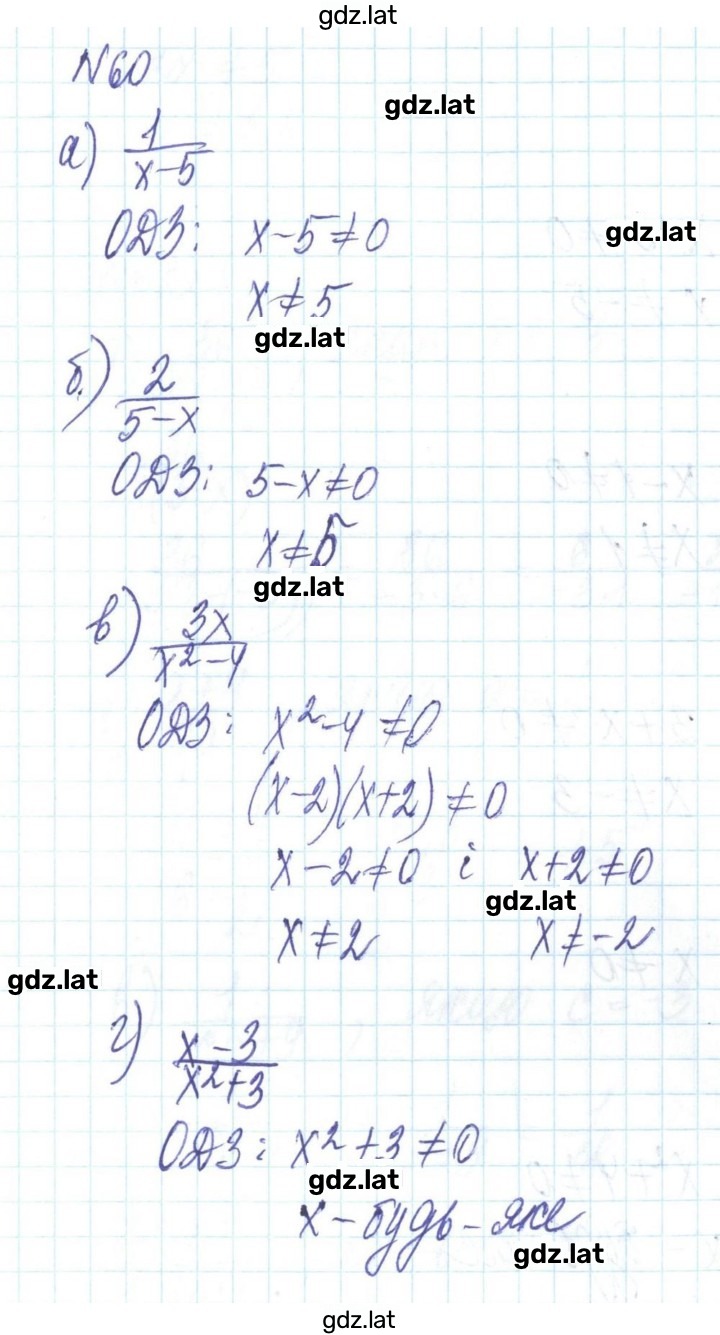 gdz.lat
N60
gdz.lat
а) 1/(x-5)
ОДЗ: x-5≠0
gdz.lat
x≠5
gdz.lat
б) 2/(5-x)
ОДЗ: 5-x≠0
x≠5
gdz.lat
в) 3x/(x²-4)
ОДЗ: x²-4≠0
(x-2)(x+2)≠0
x-2≠0 і x+2≠0
gdz.lat
x≠2 x≠-2
gdz.lat
г) (x-3)/(x²+3)
ОДЗ: x²+3≠0
gdz.lat
x-будь-яке
gdz.lat
gdz.lat